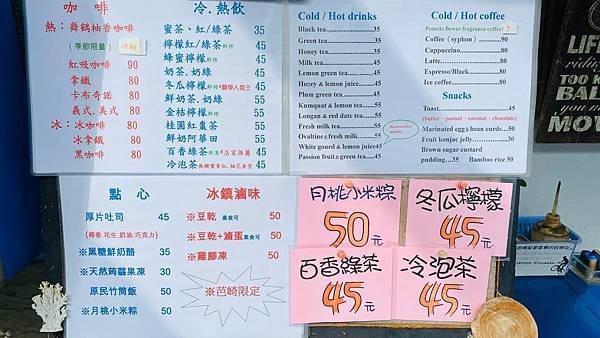 咖 啡
熱：舞鶴柚香咖啡
（季節限量）
虹吸咖啡 90
拿鐵 80
卡布奇諾 80
義式、美式 80
冰：冰咖啡 80
冰拿鐵 80
黑咖啡 80
冷.熱飲
蜜茶、紅/綠茶 35
檸檬紅/綠茶 45
蜂蜜檸檬 45
奶茶、奶綠 45
冬瓜檸檬 45
鮮奶茶、奶綠 55
金桔檸檬 55
桂圓紅棗茶 55
鮮奶阿華田 55
百香綠茶 ※店家推薦 45
冷泡茶 45
Cold / Hot drinks
Black tea 35
Green tea 35
Honey tea 35
Milk tea 45
Lemon green tea 45
Honey & lemon juice 45
Plum green tea 45
Kumquat & lemon tea 55
Longan & red date tea 55
Fresh milk tea 55
Ovaltine & fresh milk tea 55
White gourd & lemon juice 45
Passion fruit & green tea 45
Cold / Hot coffee
Pomelo flower fragrance coffee
Coffee (syphon) 90
Cappuccino 80
Latte 80
Espresso/Black 80
Ice coffee 80
Snacks
Toast 45
(butter、peanut、coconut、chocolate)
Marinated egg & bean curds 50
Fruit konjac jelly 30
Brown sugar custard
pudding 35 Bamboo rice 50
點 心
厚片吐司 45
(椰香.花生.奶油.巧克力)
※黑糖鮮奶酪 35
※天然蒟蒻果凍 30
原民竹筒飯 50
※月桃小米粽 50
冰鎮滷味
※豆乾 素食可 50
※豆乾+滷蛋 素食可 50
※雞腳凍 50
※芭崎限定
月桃小米粽
50元
冬瓜檸檬
45元
百香綠茶
45元
冷泡茶
45元
LIFE
TOO
BAL
you m
MOV